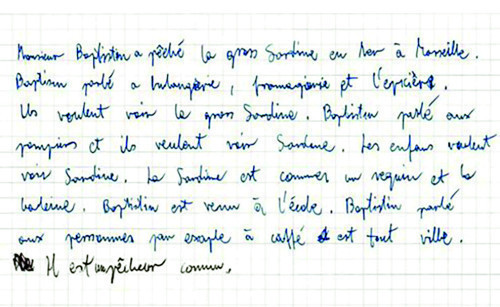 Monsieur Baptistin a pêché la gross Sardine en Mer à Marseille.
Baptistin parlé a bulangerie, fromagerie et l'epicière.
Ils veulent voir la gross Sardine. Baptistin parlé aux
pompiers et ils veulent voir Sardine. Les enfans veulent
voir Sardine. La Sardine est commes un requin et la
baleine. Baptistin est venu à l'école. Baptistin parlé
aux personnes par exople à caffé est tout ville.
Il est un pêcheur connu.